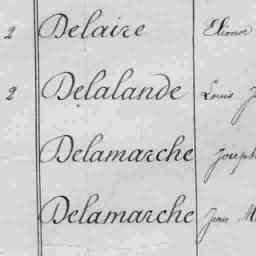 2 Delaire Elionor
2 Delalande Louis J
Delamarche Joseph
Delamarche Jean M